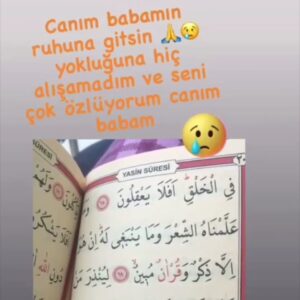 Canım babamın
ruhuna gitsin 🙏😢
yokluğuna hiç
alışamadım ve seni
çok özlüyorum canım
babam
😢
SÛRESİ
YASİN SÛRESİ
فِي الْخَلْقِ اَفَلَا يَعْقِلُونَ ٦٨
عَلَّمْنَاهُ الشِّعْرَ وَمَا يَنْبَغِي لَهُ اِنْ هُوَ
اِلَّا ذِكْرٌ وَقُرْاٰنٌ مُبِينٌ ٦٩ لِيُنْذِرَ